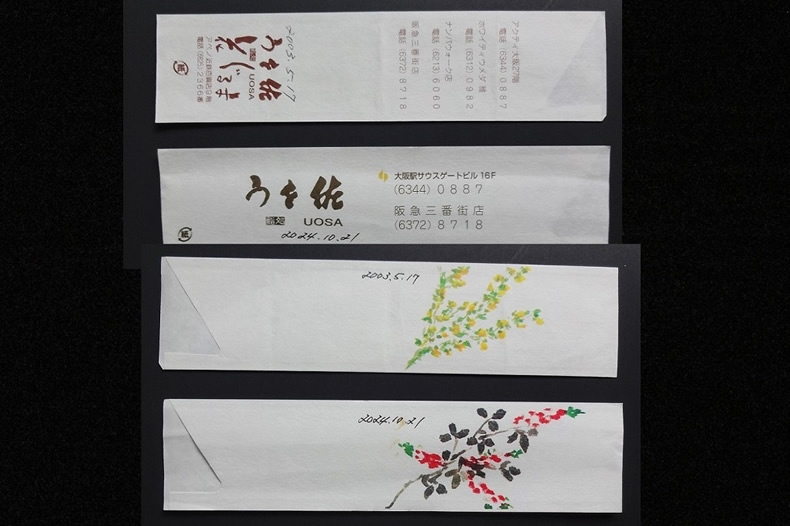 アクティ大阪27階
電話(6344)0887
ホワイティウメダ
電話(6312)0982
ナンバウォーク店
電話(6213)6060
阪急三番街店
電話(6372)8718
2003.5.17
うを佐
UOSA
紙
うを佐
UOSA
2024.10.21
大阪駅サウスゲートビル16F
(6344)0887
阪急三番街店
(6372)8718
紙
2003.5.17
2024.10.21